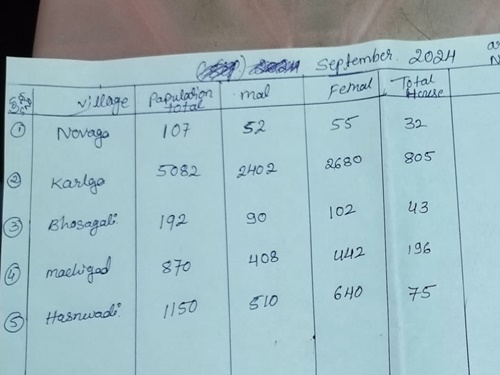 September. 2024
village Population Total mal Femal Total House
1 Novago 107 52 55 32
2 Kartgo 5082 2402 2680 805
3 Bhosagali 192 90 102 43
4 machigad 870 408 442 196
5 Hasnwadi 1150 510 640 75